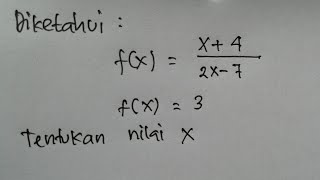 Diketahui :
f(x) = (x + 4) / (2x - 7)
f(x) = 3
Tentukan nilai x